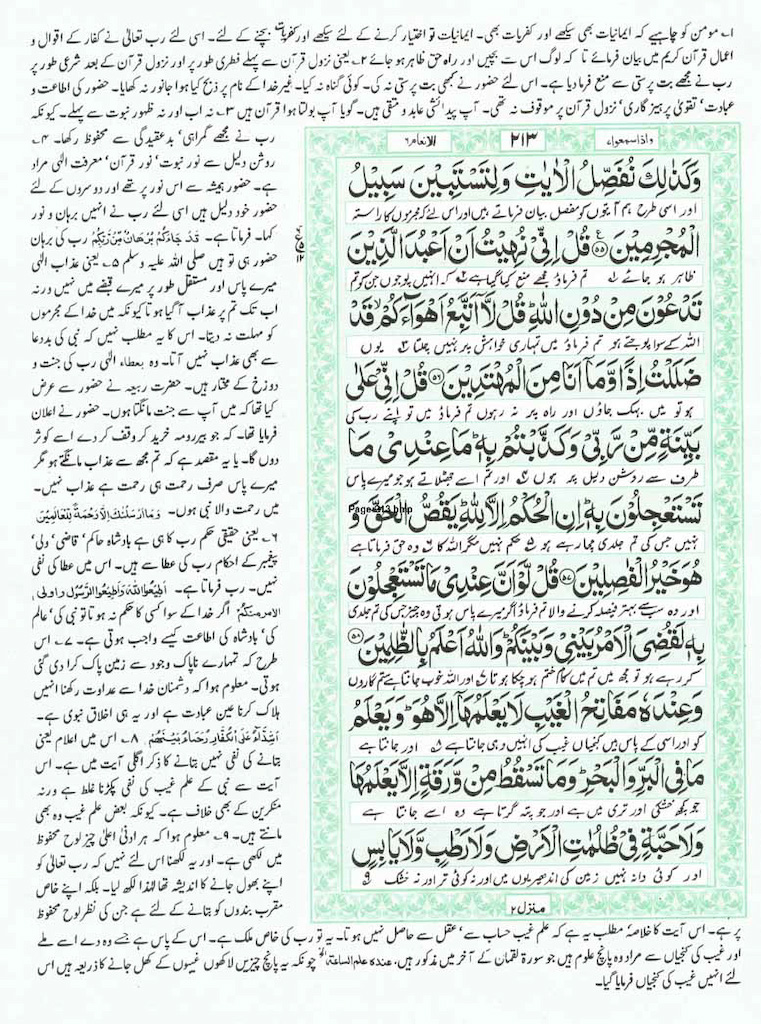 ۱۔ مومن کو چاہیے کہ ایمانیات بھی سیکھے اور کفریات بھی۔ ایمانیات تو اختیار کرنے کے لئے سیکھے اور کفریات بچنے کے لئے۔ اسی لئے رب تعالٰی نے کفار کے اقوال و
اعمال قرآن کریم میں بیان فرمائے تا کہ لوگ اس سے بچیں اور راہ حق ظاہر ہو جائے ۲۔ یعنی نزول قرآن سے پہلے فطری طور پر اور نزول قرآن کے بعد شرعی طور پر
رب نے مجھے بت پرستی سے منع فرما دیا ہے۔ اس لئے حضور نے کبھی بت پرستی نہ کی۔ کوئی گناہ نہ کیا۔ غیر خدا کے نام پر ذبح کیا ہوا جانور نہ کھایا۔ حضور کی اطاعت و
عبادت، تقویٰ پرہیز گاری، نزول قرآن پر موقوف نہ تھی۔ آپ پیدائشی عابد و متقی ہیں۔ گویا آپ بولتا ہوا قرآن ہیں ۳۔ نہ اب اور نہ ظہور نبوت سے پہلے۔ کیونکہ
رب نے مجھے گمراہی، بدعقیدگی سے محفوظ رکھا۔ ۴۔
روشن دلیل سے نور نبوت، نور قرآن، معرفت الٰہی مراد
ہے۔ حضور ہمیشہ سے اس نور پر تھے اور دوسروں کے لئے
حضور خود دلیل ہیں اسی لئے رب نے انہیں برہان و نور
کہا۔ فرماتا ہے۔ قَدْ جَاءَكُمْ بُرْهَانٌ مِّنْ رَّبِّكُمْ رب کی برہان
حضور ہی تو ہیں صلی اللہ علیہ وسلم ۵۔ یعنی عذاب الٰہی
میرے پاس اور مستقل طور پر میرے قبضے میں نہیں ورنہ
اب تک تم پر عذاب آ گیا ہوتا کیونکہ میں خدا کے مجرموں
کو مہلت نہ دیتا۔ اس کا یہ مطلب نہیں کہ نبی کی بددعا
سے بھی عذاب نہیں آتا۔ وہ بعطاء الٰہی رب کی جنت و
دوزخ کے مختار ہیں۔ حضرت ربیعہ نے حضور سے عرض
کیا تھا کہ میں آپ سے جنت مانگتا ہوں۔ حضور نے اعلان
فرمایا تھا۔ کہ جو بیر رومہ خرید کر وقف کر دے اسے کوثر
دوں گا۔ یا یہ مقصد ہے کہ تم مجھ سے عذاب مانگتے ہو مگر
میرے پاس صرف رحمت ہی رحمت ہے عذاب نہیں۔
میں رحمت والا نبی ہوں۔ وَمَا اَرْسَلْنٰكَ اِلَّا رَحْمَةً لِّلْعَالَمِيْنَ
۶۔ یعنی حقیقی حکم رب کا ہی ہے بادشاہ حاکم، قاضی، ولی،
پیغمبر کے احکام رب کی عطا سے ہیں۔ اس میں عطا کی نفی
نہیں۔ رب فرماتا ہے۔ اَطِيْعُوا اللّٰهَ وَاَطِيْعُوا الرَّسُوْلَ وَاُولِي
الْاَمْرِ مِنْكُمْ اگر خدا کے سوا کسی کا حکم نہ ہو تا تو نبی کی، عالم
کی، بادشاہ کی اطاعت کیسے واجب ہوتی ہے۔ ۷۔ اس
طرح کہ تمہارے ناپاک وجود سے زمین پاک کرا دی گئی
ہوتی۔ معلوم ہوا کہ دشمنان خدا سے عداوت رکھنا انہیں
ہلاک کرنا عین عبادت ہے اور یہ ہی اخلاق نبوی ہے۔
اَشِدَّاءُ عَلَى الْكُفَّارِ رُحَمَاءُ بَيْنَهُمْ ۸۔ اس میں اعلام یعنی
بتانے کی نفی نہیں بتانے کا ذکر اگلی آیت میں ہے۔ اس
آیت سے نبی کے علم غیب کی نفی پکڑنا غلط ہے ورنہ
منکرین کے بھی خلاف ہے۔ کیونکہ بعض علم غیب وہ بھی
مانتے ہیں۔ ۹۔ معلوم ہوا کہ ہر ادنیٰ اعلیٰ چیز لوح محفوظ
میں لکھی ہے۔ اور یہ لکھنا اس لئے نہیں کہ رب تعالٰی کو
اپنے بھول جانے کا اندیشہ تھا لہٰذا لکھ لیا۔ بلکہ اپنے خاص
مقرب بندوں کو بتانے کے لئے ہے جن کی نظر لوح محفوظ
واذا سمعوا ۷
۲۱۳
الانعام ۶
وَكَذٰلِكَ نُفَصِّلُ الْاٰيٰتِ وَلِتَسْتَبِيْنَ سَبِيْلُ
اور اسی طرح ہم آیتوں کو مفصل بیان فرماتے ہیں اور اس لئے کہ مجرموں کا راستہ
الْمُجْرِمِيْنَ ﴿۵۵﴾ قُلْ اِنِّيْ نُهِيْتُ اَنْ اَعْبُدَ الَّذِيْنَ
ظاہر ہو جائے ۱ تم فرماؤ مجھے منع کیا گیا ہے ۲ کہ انہیں پوجوں جن کو تم
تَدْعُوْنَ مِنْ دُوْنِ اللّٰهِ قُلْ لَّاۤ اَتَّبِعُ اَهْوَآءَكُمْ قَدْ
اللہ کے سوا پوجتے ہو تم فرماؤ میں تمہاری خواہش پر نہیں چلتا ۳ یوں
ضَلَلْتُ اِذًا وَّمَاۤ اَنَا مِنَ الْمُهْتَدِيْنَ ﴿۵۶﴾ قُلْ اِنِّيْ عَلٰى
ہو تو میں بہک جاؤں اور راہ پر نہ رہوں تم فرماؤ میں تو اپنے رب کی
بَيِّنَةٍ مِّنْ رَّبِّيْ وَكَذَّبْتُمْ بِهٖ مَا عِنْدِيْ مَا
طرف سے روشن دلیل پر ہوں ۴ اور تم اسے جھٹلاتے ہو میرے پاس
تَسْتَعْجِلُوْنَ بِهٖ اِنِ الْحُكْمُ اِلَّا لِلّٰهِ يَقُصُّ الْحَقَّ وَ
Page-213.bmp
نہیں جس کی تم جلدی مچا رہے ہو ۵ حکم نہیں مگر اللہ کا ۶ وہ حق فرماتا ہے
هُوَ خَيْرُ الْفٰصِلِيْنَ ﴿۵۷﴾ قُلْ لَّوْ اَنَّ عِنْدِيْ مَا تَسْتَعْجِلُوْنَ
اور وہ سب سے بہتر فیصلہ کرنے والا تم فرماؤ اگر میرے پاس ہوتی وہ چیز جس کی تم جلدی
بِهٖ لَقُضِيَ الْاَمْرُ بَيْنِيْ وَبَيْنَكُمْ وَاللّٰهُ اَعْلَمُ بِالظّٰلِمِيْنَ ﴿۵۸﴾
کر رہے ہو تو مجھ میں تم میں کام ختم ہو چکا ہوتا ۷ اور اللہ خوب جانتا ہے ستم گاروں
وَعِنْدَهٗ مَفَاتِحُ الْغَيْبِ لَا يَعْلَمُهَاۤ اِلَّا هُوَ وَيَعْلَمُ
کو اور اسی کے پاس ہیں کنجیاں غیب کی انہیں وہی جانتا ہے ۸ اور جانتا ہے
مَا فِي الْبَرِّ وَالْبَحْرِ وَمَا تَسْقُطُ مِنْ وَّرَقَةٍ اِلَّا يَعْلَمُهَا
جو کچھ خشکی اور تری میں ہے اور جو پتہ گرتا ہے وہ اسے جانتا ہے
وَلَا حَبَّةٍ فِيْ ظُلُمٰتِ الْاَرْضِ وَلَا رَطْبٍ وَّلَا يَابِسٍ
اور کوئی دانہ نہیں زمین کی اندھیریوں میں اور نہ کوئی تر اور نہ خشک ۹
منزل ۲
پر ہے۔ اس آیت کا خلاصہ مطلب یہ ہے کہ علم غیب حساب سے، عقل سے حاصل نہیں ہو تا۔ یہ تو رب کی خاص ملک ہے۔ اس کے پاس ہے جسے وہ دے اسے ملے
اور غیب کی کنجیاں سے مراد وہ پانچ علوم ہیں جو سورۃ لقمان کے آخر میں مذکور ہیں، عندہ علم الساعۃ الخ چونکہ یہ پانچ چیزیں لاکھوں غیبوں کے کھل جانے کا ذریعہ ہیں اس
لئے انہیں غیب کی کنجیاں فرمایا گیا۔